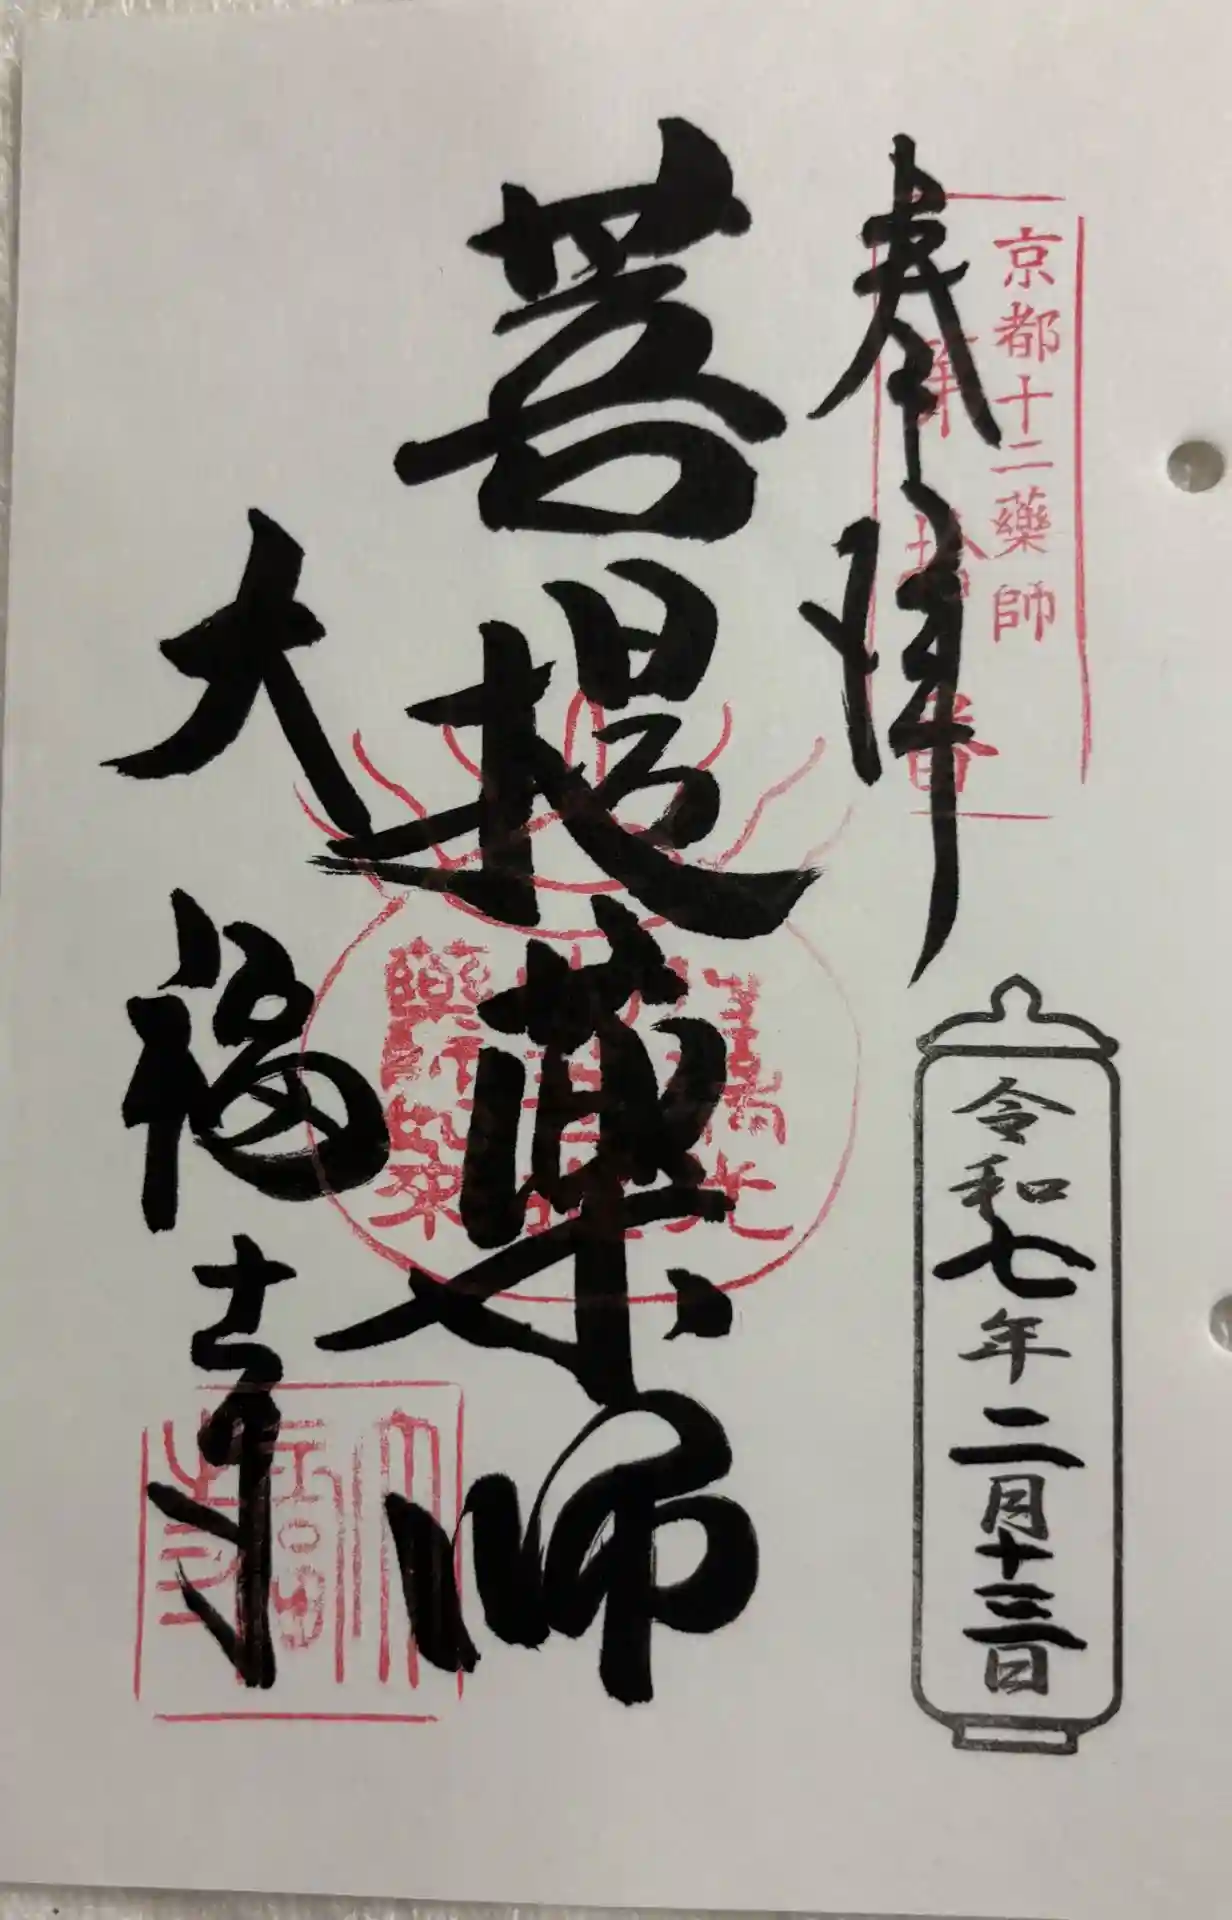 奉拝
京都十二藥師
第拾番
令和七年二月十三日
菩提薬師
大福寺